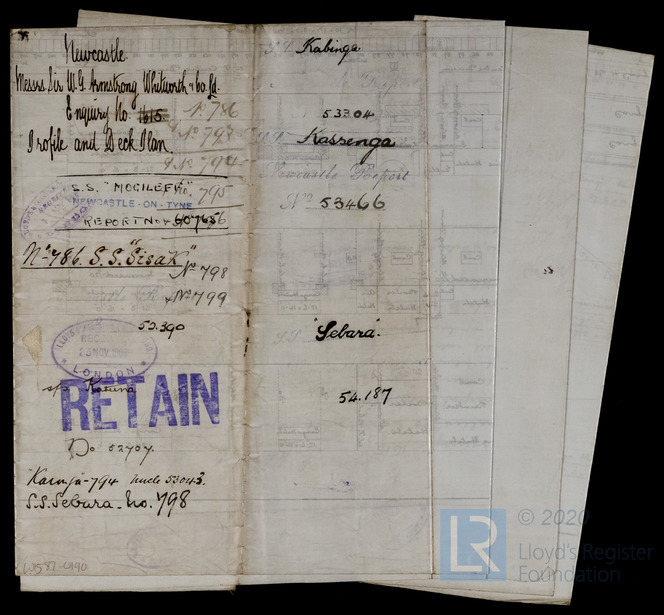 Newcastle.
Messrs Sir W. G. Armstrong Whitworth & Co. Ld.
Enquiry No. 1615 No. 786
No 793
Profile and Deck Plan.
& No 794
S.S. "MOGILEFF" No. 795
NEWCASTLE-ON-TYNE
REPORT No
No 786. S.S. "Sisak"
No 798
& No 799
52.390
LONDON
RETAIN
s/s Karuna
No 52707.
Karunja-794 Nwcle 53043.
S.S. Sebara. No. 798
W587-0190
S.S. Kabinga
53304
S.S. Kassenga
Newcastle Report
No 53466
S.S. "Sebara".
54.187
LR
© 2020
Lloyd's Register
Foundation